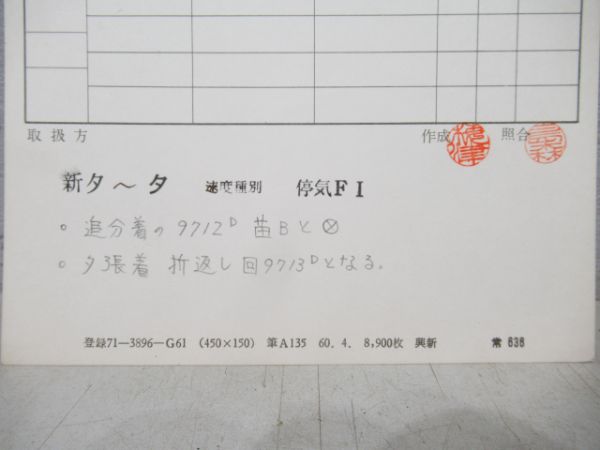 取扱方 作成 照合
新夕〜夕 速度種別 停気F1
。追分着の9712D 苗Bと⊗
。夕張着 折返し回9713Dとなる。
登録71—3896—G61 (450×150) 筆A135 60. 4. 8,900枚 興新 常 636